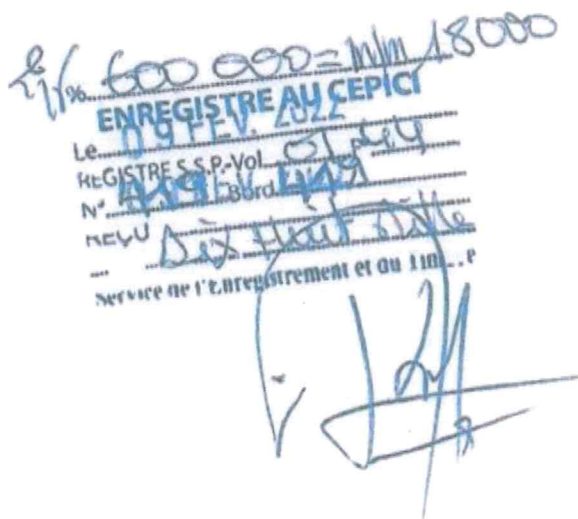 % 600 000 = m/m 18000
ENREGISTRE AU CEPICI
Le 09 FEV. 2022
REGISTRE S.S.P.-Vol 44
N° Bord
REÇU Dix Huit Mille
Service de l'Enregistrement et du